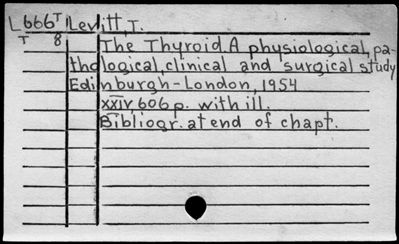 L666T Levitt, T.
T 8 The Thyroid A physiological, pa-
thological, clinical and surgical study
Edinburgh-London, 1954
XXIV, 606 p. with ill.
Bibliogr. at end of chapt.